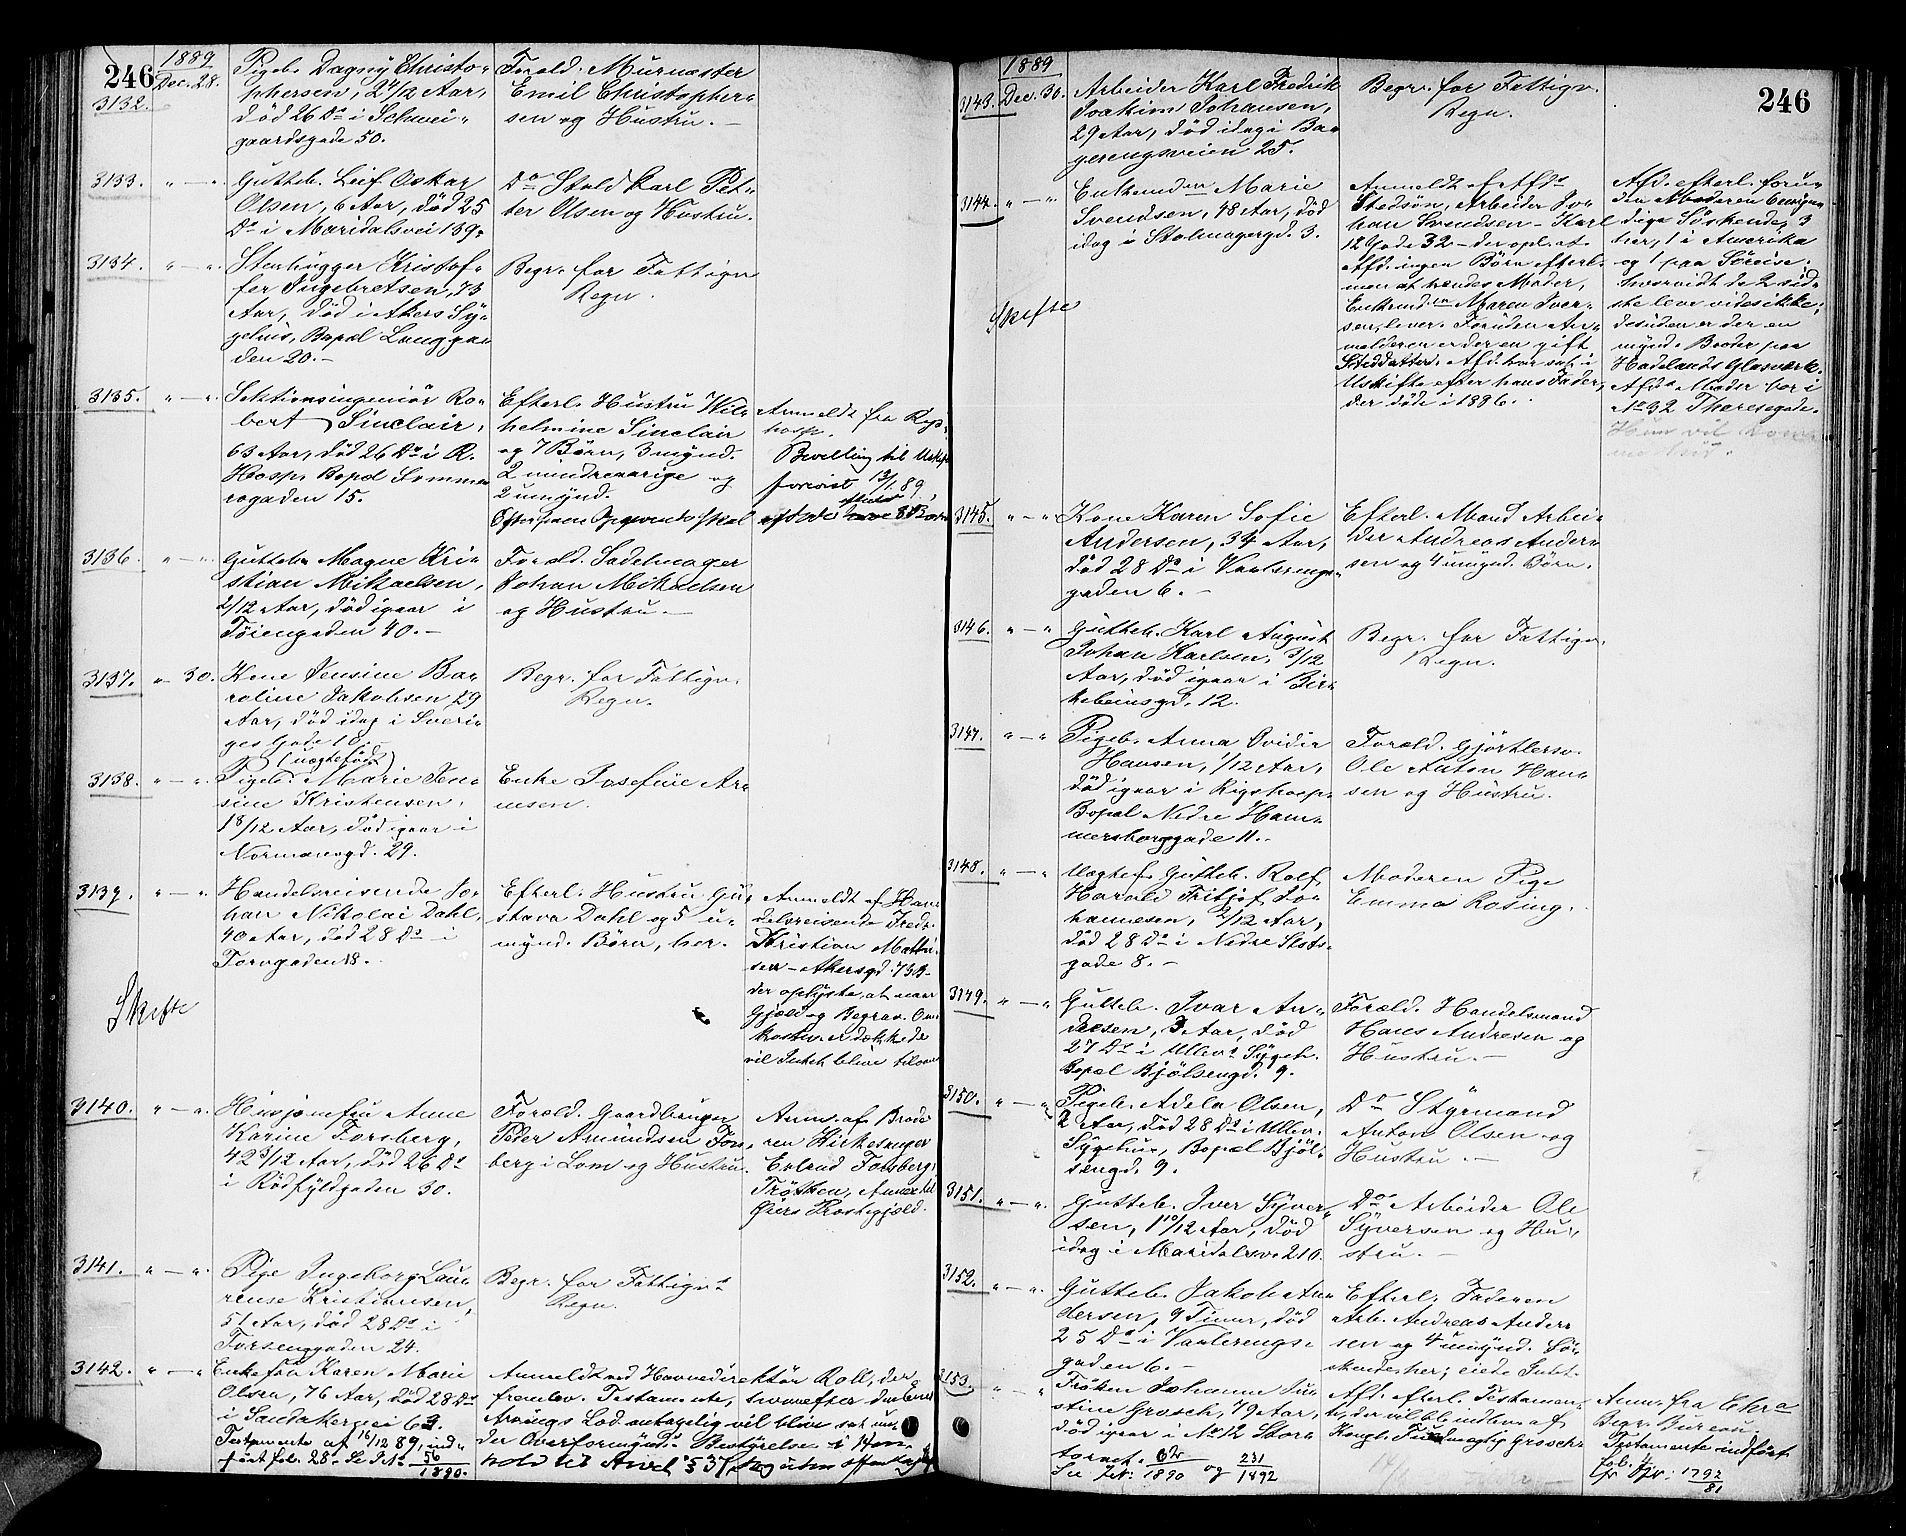 246
1889
Dec. 28.
3132.
Pigeb. Dagny Christo-
phersen, 2 9/12 Aar,
død 26 Ds i Schwei-
gaardsgade 50.
Forald. Murmester
Emil Christopher-
sen og Hustru.
3133. " — "
Gutteb. Leif Oskar
Olsen, 6 Aar, død 25
Ds i Maridalsvei 139.
Do Stald Karl Pet-
ter Olsen og Hustru.
3134. " — "
Stenhugger Kristof-
fer Ingebretsen, 73
Aar, død i Akers Sy-
gehus, Bopæl Langga-
den 20.
Begr. for Fattigv.
Regn.
3135. " — "
Sektionsingeniör Ro-
bert Sinclair,
63 Aar, død 26 Ds i R.
Hosp. Bopæl Sommer-
rogaden 15.
Efterl. Hustru Wil-
helmine Sinclair
og 7 Børn, 3 mynd.
2 mindreaarige og
2 umynd.
Anmeldt fra Rigs-
hosp.
Bevilling til Uskifte
forevist 13/1 89.
3136. " — "
Gutteb. Magne Kri-
stian Mikaelsen,
2/12 Aar, død igaar i
Tøiengaden 40.
Forald. Sadelmager
Johan Mikaelsen
og Hustru.
3137. " 30.
Kone Jensine Ba-
roline Jakobsen, 29
Aar, død idag i Sveri-
ges Gade 10.
Begr. for Fattigv.
Regn.
3138. " — "
(uægtefødt)
Pigeb. Marie Jen-
sine Kristensen,
1 8/12 Aar, død igaar i
Normannsgd. 29.
Enke Josefine Ar-
nesen.
3139. " — "
Handelsreisende Jo-
han Nikolai Dahl,
40 Aar, død 28 Ds i
Torvgaden 18.
Efterl. Hustru Gu-
stava Dahl og 5 u-
mynd. Børn, her.
Anmeldt af Han-
delsreisende Fredr.
Kristian Mathi-
sen - Akersgd. 73 B -
der oplyste, at naar
Gjæld og Begrav. Om-
kostn. er dækkede
vil Intet blive tilovers
Skifte
3140. " — "
Husjomfru Anne
Karine Forsberg,
42 3/12 Aar, død 26 Ds
i Rødfyldgaden 30.
Forald. Gaardbruger
Peder Amundsen Fors-
berg i Lom og Hustru.
Anm. af Brode-
ren Kirkesanger
Erland Forsberg,
Trøtten, Annex til
Øiers Prestegjæld.
3141. " — "
Pige Ingeborg Lau-
rense Kristiansen,
51 Aar, død 28 Ds i
Forsenggaden 24.
Begr. for Fattigv.s
Regn.
3142. " — "
Enkefru Karen Marie
Olsen, 76 Aar, død 28 Ds
i Sandakerveien 63.
Testamente af 16/12 89, ind-
ført fol. 28. Se P.No 56/1890.
Anmeldt ved Havnedirektör Roll, der
fremlev. Testamente, hvorefter den
Arvings Lod antagelig vil blive sat un-
der Overformynd. Bestyrelse i Hen-
hold til Arvel. § 37
246
1889
3143. Dec. 30.
Arbeider Karl Fredrik
Joakim Johansen,
29 Aar, død idag i Bo-
gerengsveien 25.
Begr. for Fattigv.
Regn.
3144. " — "
Enkemd.en Marie
Svendsen, 48 Aar, død
idag i Stolmagergd. 3.
Skifte
Anmeldt af Afd.s
Stedsøn, Arbeider Jo-
han Svendsen - Karl
12 Gade 32 - der opl. at
Afd. ingen Børn efterl.
men at hendes Moder,
Enkemd.en Maren Iver-
sen, lever. Foruden An-
melderen er der en gift
Steddatter. Afd. har sat i
Uskifte efter hans Fader,
der døde i 1886.
Afd. efterl. foru-
den Moderen 6 myn-
dige Söskende, 3
her, 1 i Amerika
og 1 paa Søreise.
Hvorvidt de 2 sid-
ste leve vides ikke;
desuden er der en
mynd. Broder paa
Hadelands Glasværk.
Afd.s Moder bor i
No 32 Theresegade.
Hun vil
3145. " — "
Kone Karen Sofie
Andersen, 34 Aar,
død 28 Ds i Vaalerengs-
gaden 6.
Efterl. Mand Arbei-
der Andreas Ander-
sen og 4 umynd. Børn.
3146. " — "
Gutteb. Karl August
Johan Karlsen, 3/12
Aar, død igaar i Bir-
kebeinsgd. 12.
Begr. for Fattigv.
Regn.
3147. " — "
Pigeb. Anna Ovidie
Hansen, 1/12 Aar,
død igaar i Rigshosp.
Bopæl Nedre Ham-
mersborggade 11.
Forald. Gjørtlersv.
Ole Anton Han-
sen og Hustru.
3148. " — "
Uægtef. Gutteb. Rolf
Harald Fritjof Jo-
hannesen, 2/12 Aar,
død 28 Ds i Nedre Slots-
gade 8.
Moderen Pige
Emma Rosing.
3149. " — "
Gutteb. Ivar An-
dresen, 3 Aar, død
27 Ds i Ullev.s Sygeh.
Bopæl Bjölsengd. 9.
Forald. Handelsmand
Hans Andresen og
Hustru.
3150. " — "
Pigeb. Adela Olsen,
2 Aar, død 28 Ds i Ullev.
Sygehus, Bopæl Bjöl-
sengd. 9.
Do Styrmand
Anton Olsen og
Hustru.
3151. " — "
Gutteb. Iver Syver-
sen, 1 10/12 Aar, død
idag i Maridalsvei 210.
Do Arbeider Ole
Syversen og Hu-
stru.
3152. " — "
Gutteb. Jakob An-
dersen, 9 Timer, død
25 Ds i Vaalerengs-
gaden 6.
Efterl. Faderen
Arb. Andreas Ander-
sen og 4 umynd. Sö-
skende, her; eiede Intet.
3153. " — "
Frøken Johanne Ju-
stine Grosch, 79 Aar,
død igaar i No 12 Stor-
torvet.
og 231/1892
Afd. efterl. Testamen-
te, der vil bli indlev. af
Kongl. Fuldmægtig Grosch.
Anm. fra Chra
Begr. Bureau.
Testamente indført
fol. 4
1792/81